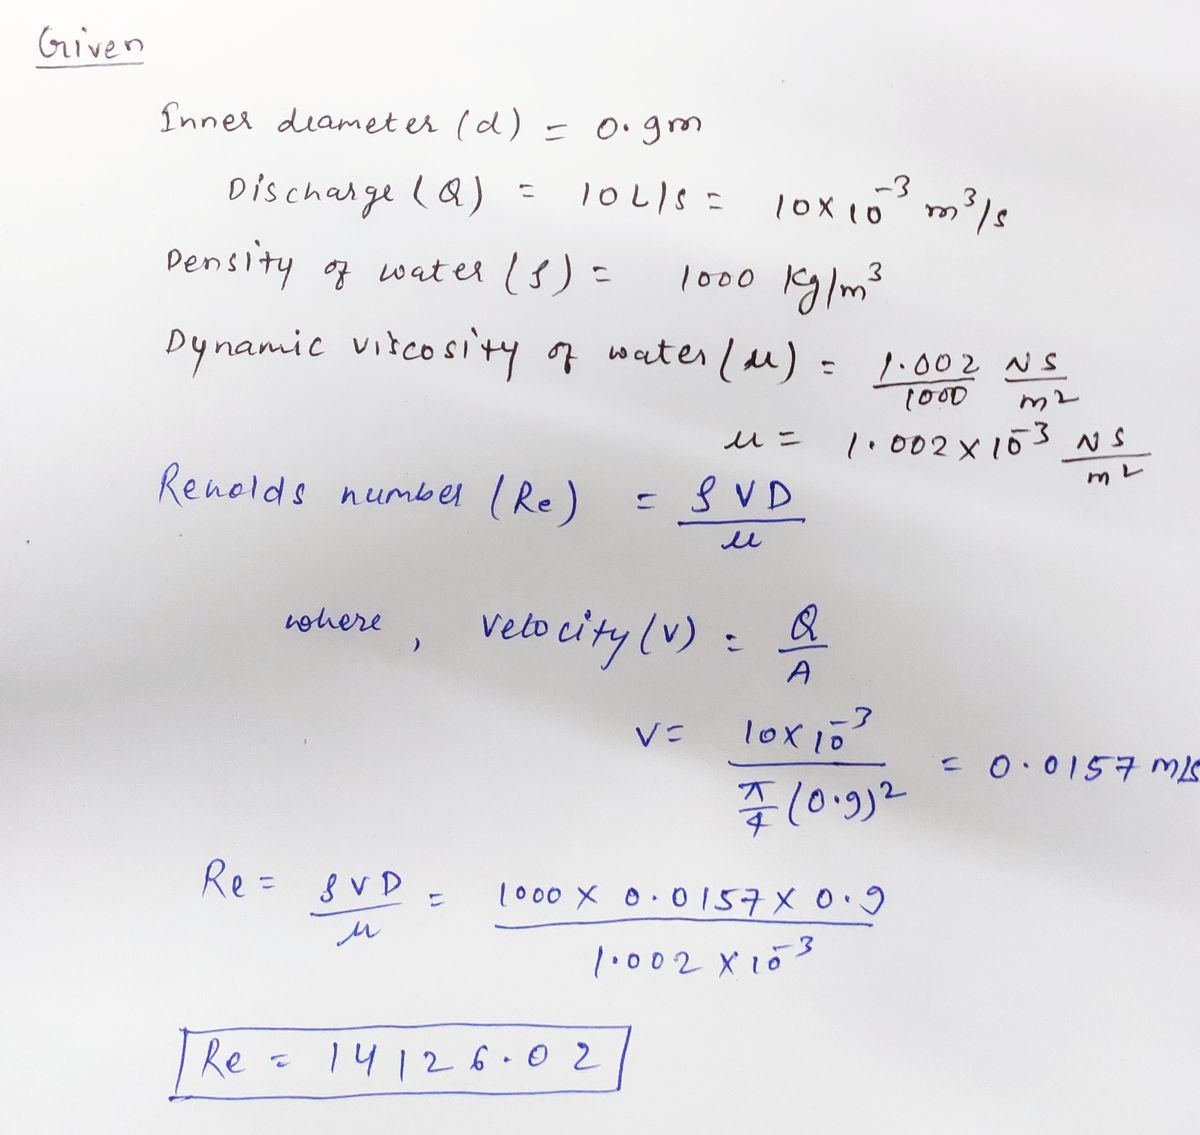 Given
Inner deameter (d) = 0.9m
Discharge (Q) = 10L/s = 10×10⁻³ m³/s
Density of water (ρ) = 1000 Kg/m³
Dynamic viscosity of water (μ) = 1.002/1000 NS/m²
μ = 1.002×10⁻³ NS/m²
Renolds number (Re) = ρVD/μ
where, velocity (v) = Q/A
V = 10×10⁻³ / π/4 (0.9)² = 0.0157 m/s
Re = ρVD/μ = 1000 × 0.0157 × 0.9 / 1.002 × 10⁻³
Re = 14126.02